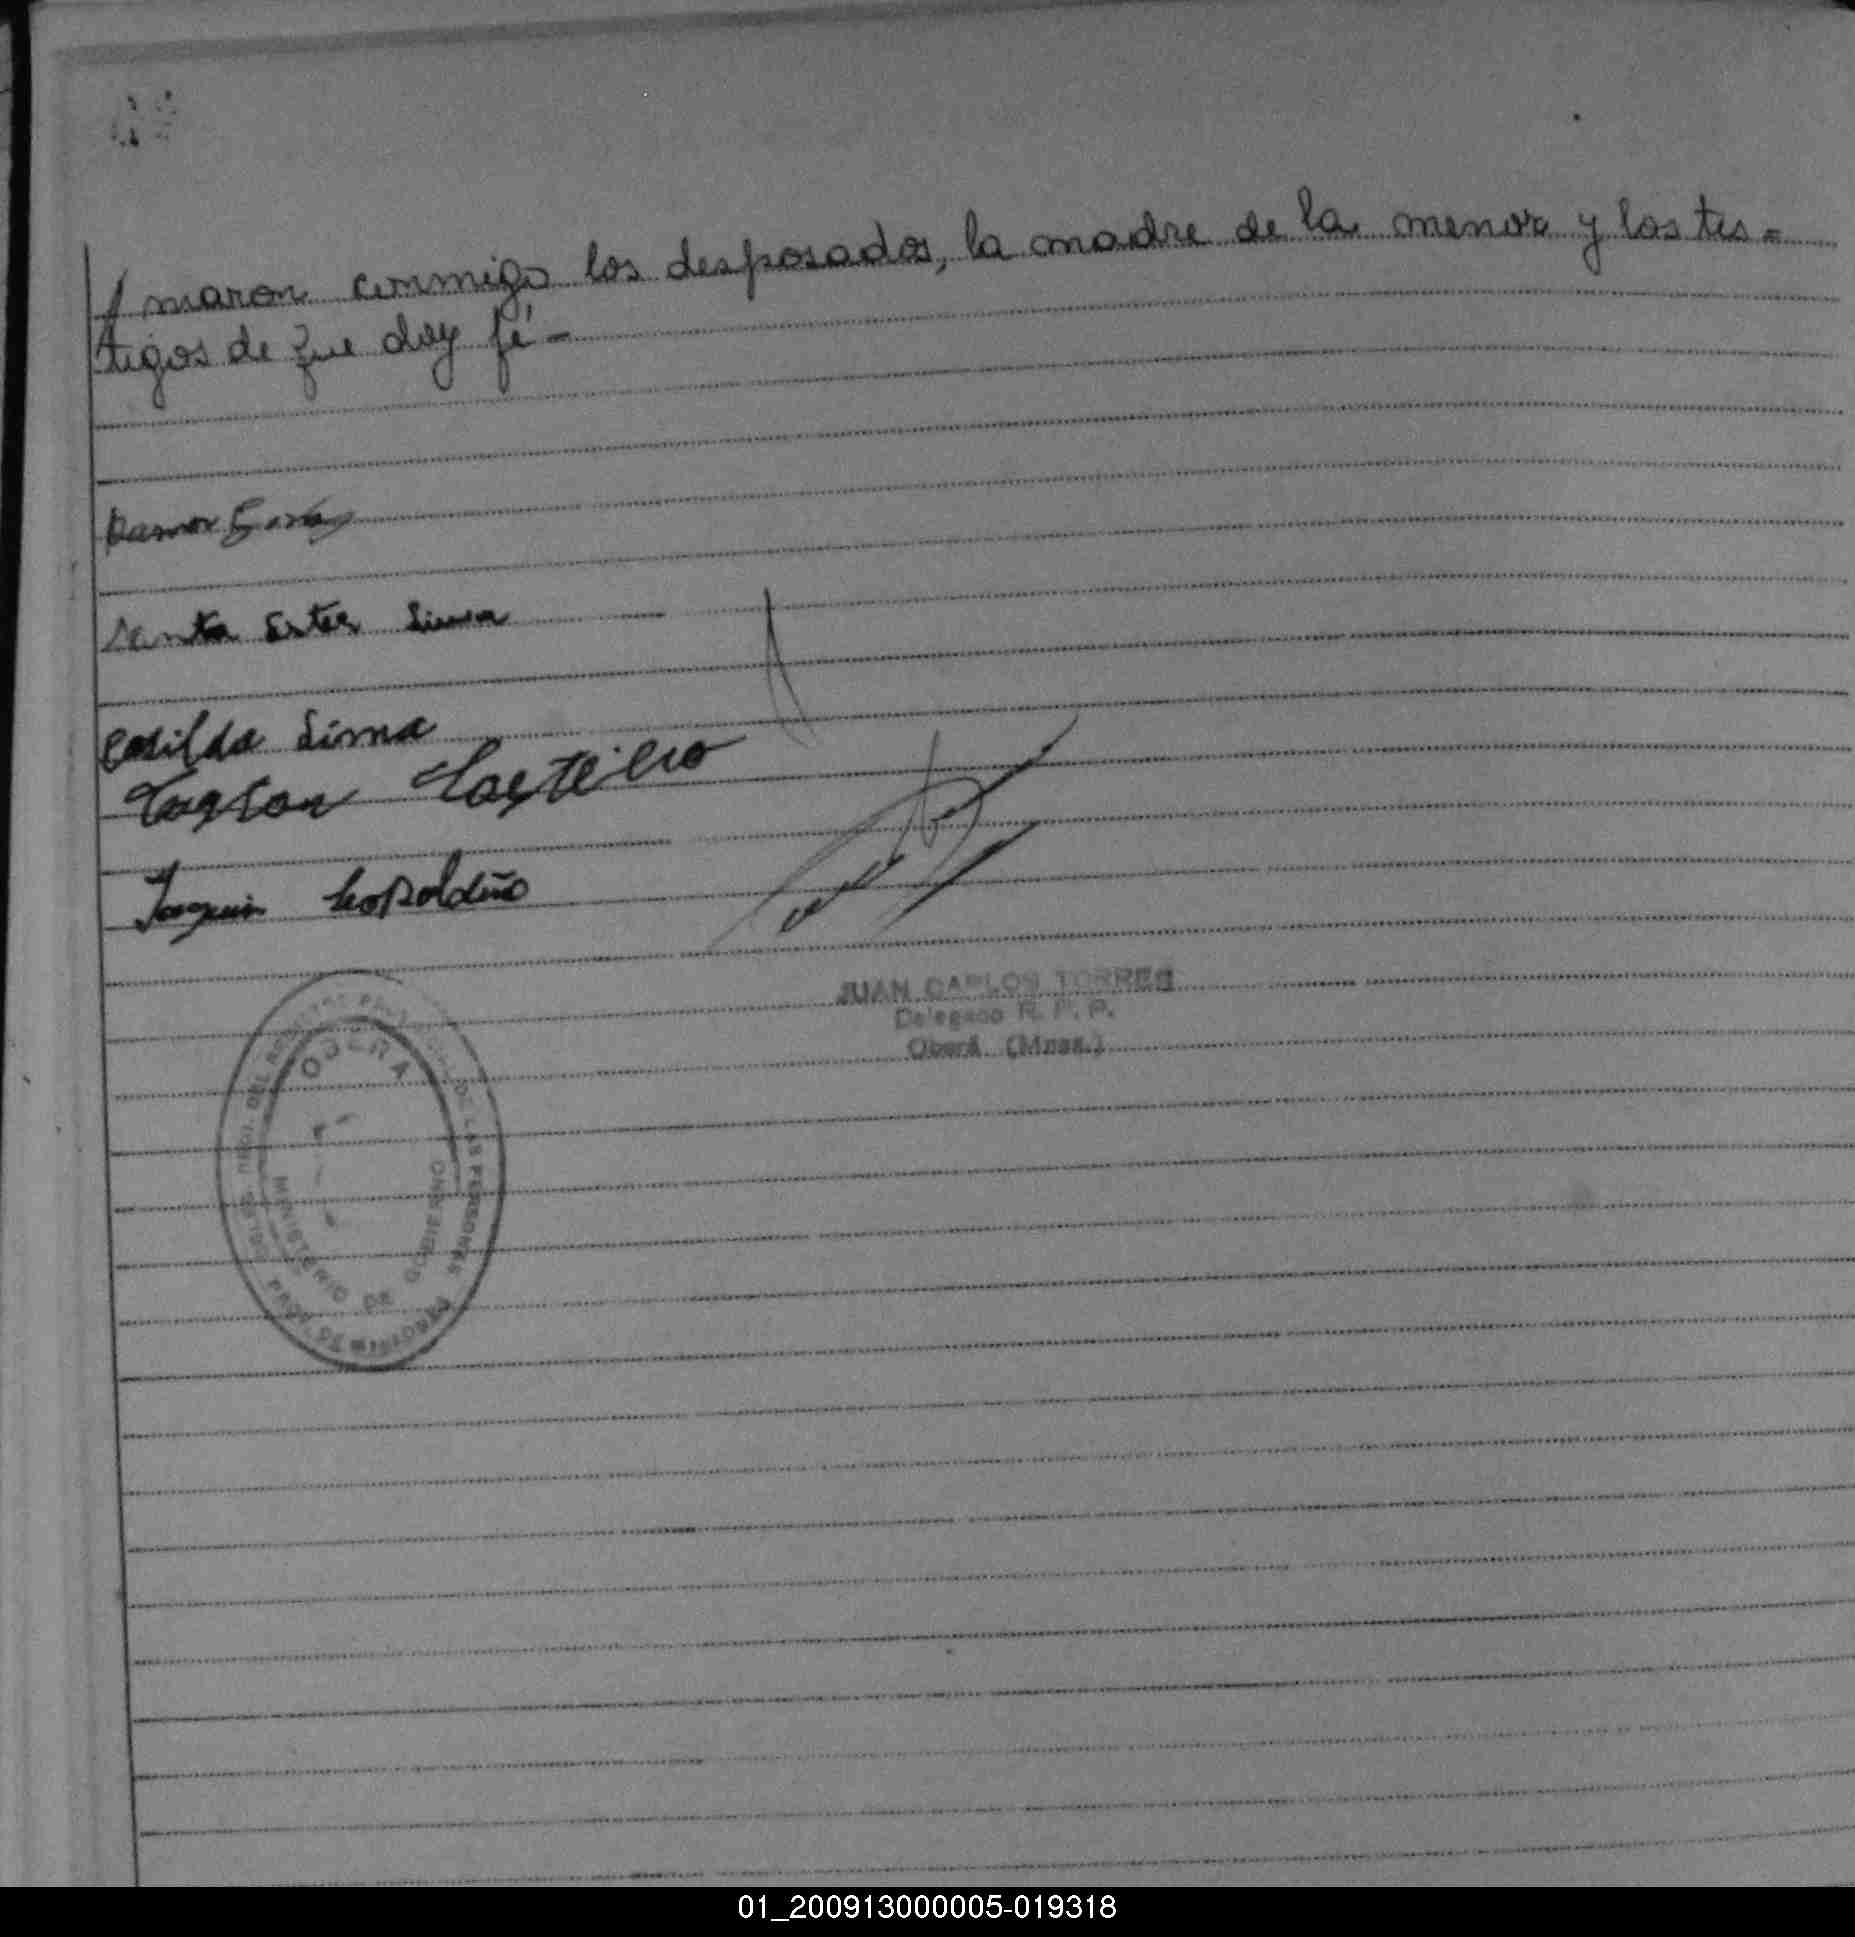 / maron conmigo los desposados, la madre de la menor y los tes=
tigos de que doy fé -
Ramon
Santa Ester Lima
Casilda Lima
Castillo
Joaquin Leopoldino
JUAN CARLOS TORRES
Delegado R. P. P.
Oberá (Mnes.)
OBERA
MINISTERIO DE GOBIERNO
DEL REGISTRO PROVINCIAL DE LAS PERSONAS
PROV. DE MISIONES
01_200913000005-019318